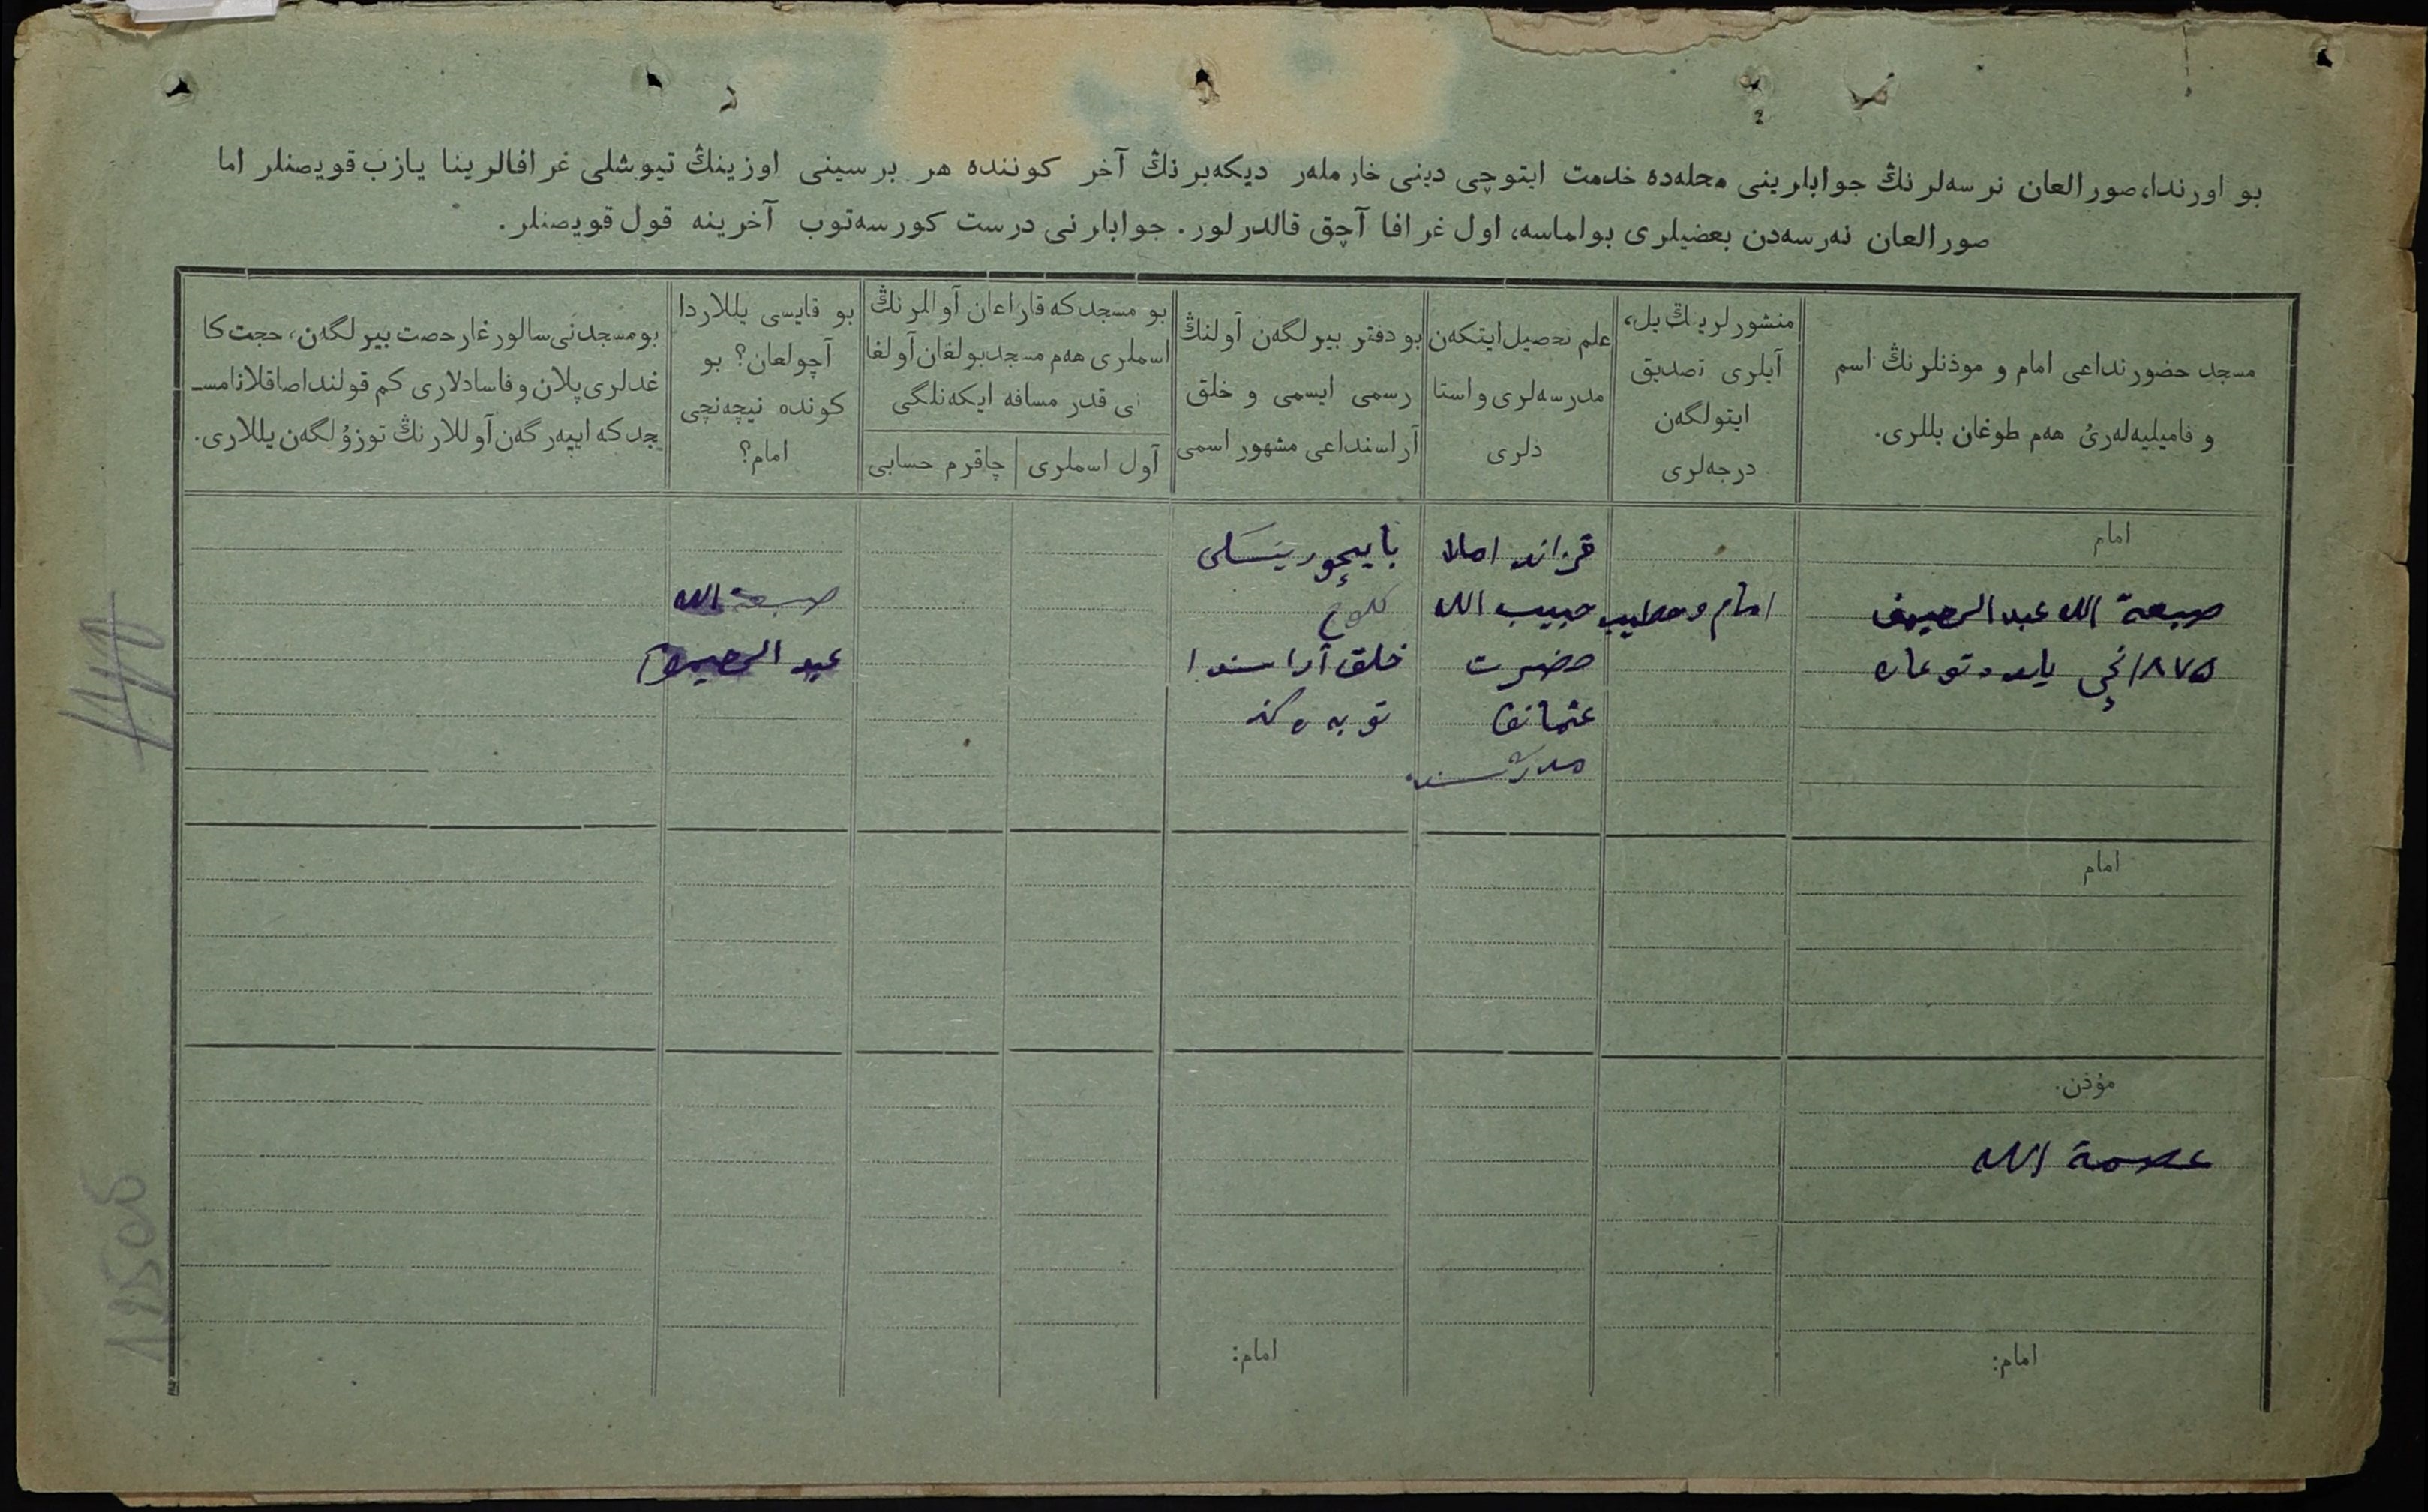 بو اورندا، صورالعان نرسه‌لرنڭ جوابلرینی محله‌ده خدمت ایتوچی دینی خادملەر دیكەبرنڭ آخر كوننده هر برسینی اوزینڭ تیوشلی غرافالرینا یازب قویصنلر اما
صورالعان نەرسەدن بعضیلری بولماسه، اول غرافا آچق قالدرلور. جوابلرنی درست كورسەتوب آخرینه قول قویصنلر.
مسجد حضورنداعی امام و موذنلرنڭ اسم
و فامیلیه‌لەرئ هەم طوغان یللری.
منشورلرینڭ یل،
آیلری تصدیق
ایتولگەن
درجه‌لری
علم تحصیل ایتكەن
مدرسه‌لری و استا
دلری
بو دفتر بیرلگەن آولنڭ
رسمی ایسمی و خلق
آراسنداعی مشهور اسمی
بو مسجدكه قاراعان آوللرنڭ
اسملری هەم مسجد بولغان آولغا
نی قدر مسافه ایكەنلگی
آول اسملری
چاقرم حسابی
بو قایسی یللاردا
آچولعان؟ بو
كونده نیچەنچی
امام؟
بو مسجدنی سالورغا رحصت بیرلگەن، حجت كا
غدلری پلان و فاسادلاری كم قولندا صاقلانا مسـ
جدكه ایپەرگەن آوللارنڭ توزۇلگەن یللاری.
امام
صبعة الله عبدالرحیموف
١٨٧٥نچی یلده توعان
امام و خطیب
قزاند املا
حبیب الله
حضرت
عثمانف
مدرسسنده
بایچورینسكی
خلق آراسندا
صبعة الله
عبدالرحیموف
امام
مؤذن.
عصمة الله
امام:
امام: